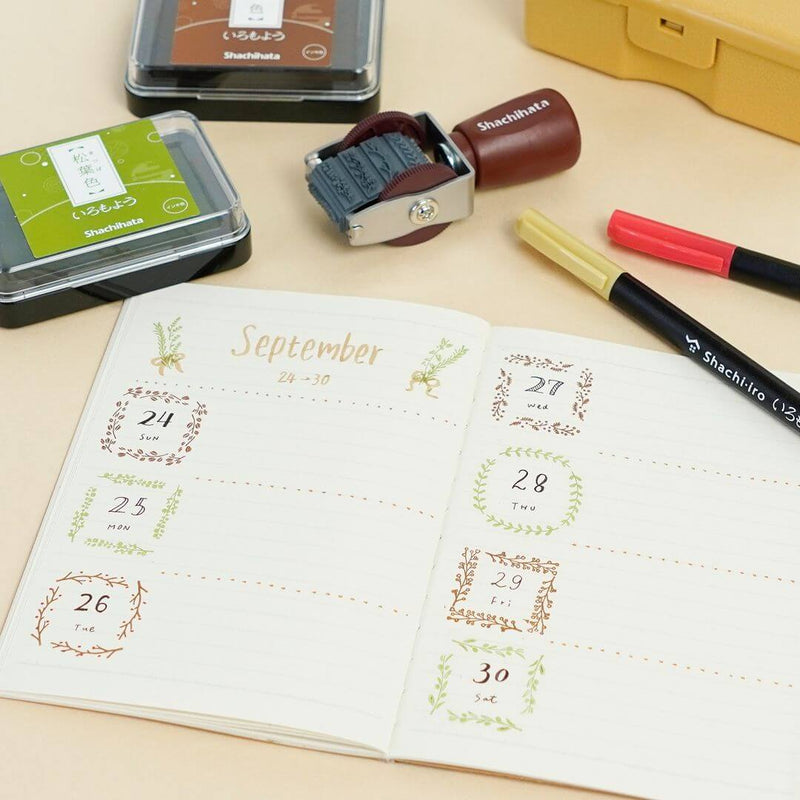 色
いろもよう
Shachihata
松葉色
いろもよう
Shachihata
Shachihata
Shachi・iro いろも
September
24→30
24
SUN
25
MON
26
Tue
27
Wed
28
THU
29
Fri
30
Sat